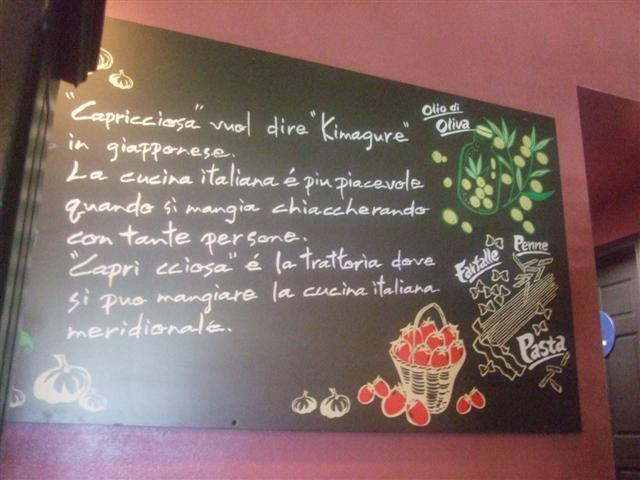 "Capricciosa" vuol dire "Kimagure"
in giapponese.
La cucina italiana é piu piacevole
quando si mangia chiaccherando
con tante persone.
"Capri cciosa" é la trattoria dove
si puo mangiare la cucina italiana
meridionale.
Olio di
Oliva
Penne
Farfalle
Pasta